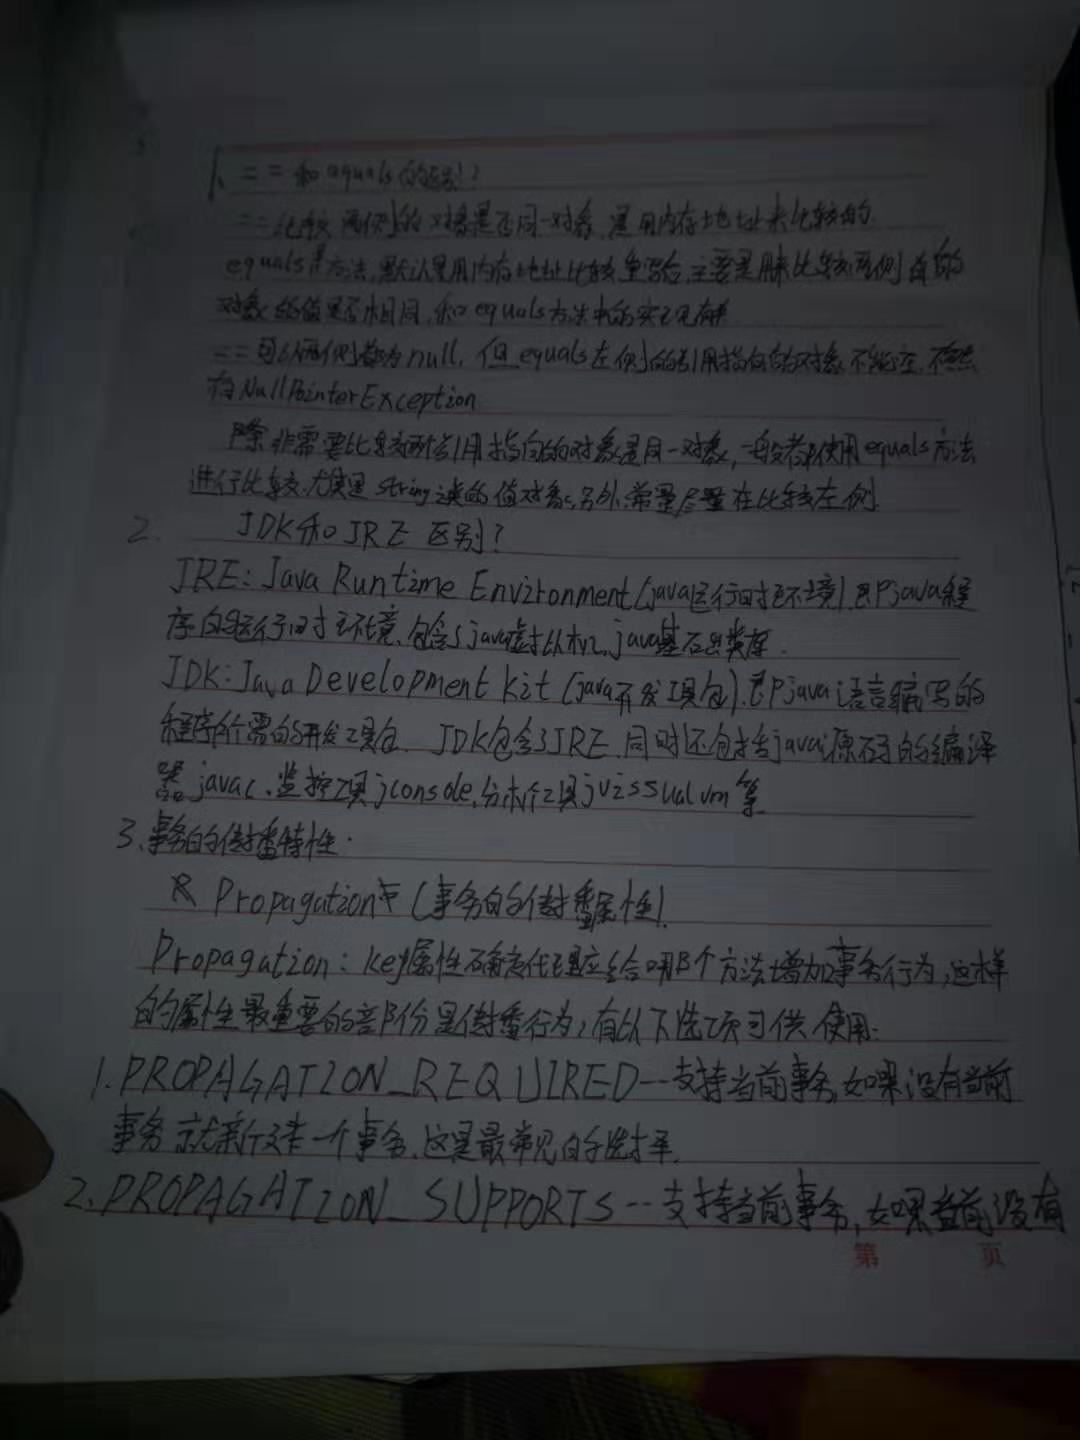 1、== 和 equals 的区别?
==比较两侧的对象是否同一对象,是用内存地址来比较的.
equals是方法,默认是用内存地址比较,重写后,主要是用来比较两侧的
对象的值是否相同,和equals方法中的实现有关.
==可以两侧都为null,但equals左侧的引用指向的对象不能空,不然
有NullPointerException
除非需要比较两个引用指向的对象是同一对象,一般都使用equals方法
进行比较.尤其是String之类的值对象,另外,常量尽量在比较左侧.
2. JDK和JRE区别?
JRE:Java Runtime Environment(java运行时环境).即java程
序的运行时环境,包含了java虚拟机,java基础类库.
JDK:Java Development Kit (java开发工具包).即java语言编写的
程序所需的开发工具包. JDK包含了JRE,同时还包括java源码的编译
器javac、监控工具jconsole,分析工具jvissualvm等
3.事务的传播特性.
Propagation (事务的传播属性).
Propagation: key属性确定代理应该给哪个方法增加事务行为,这样
的属性最重要的部份是传播行为,有以下选项可供使用:
1.PROPAGATION_REQUIRED--支持当前事务,如果没有当前
事务,就新建一个事务,这是最常见的选择.
2.PROPAGATION_SUPPORTS--支持当前事务,如果当前没有
第 页